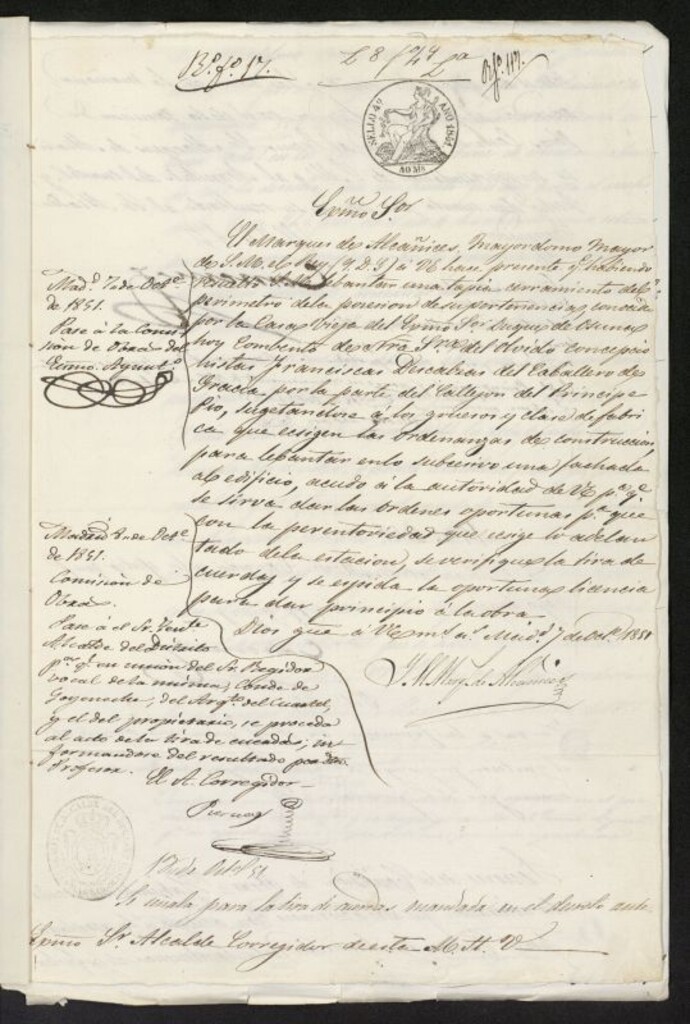 Rº fº 17.
Rfº. 117.
SELLO 4º AÑO 1851
40 MS
Exmo Sor
El Marques de Alcañices, Mayordomo Mayor
de S. M. el Rey (q. D. g) á VE hace presente qe habiendo
de lebantar una tapia cerramiento del
perimetro dela posesion de su pertinencia, conocida
por la Casa Vieja del Exmo Sor Duque de Osuna
hoy Combento de Ntra Sra del Olvido concepcio
nistas Franciscas Descalzas del Caballero de
Gracia, por la parte del Callejon del Principe
Pio, sugetandose á los gruesos y clase de fabri
ca que ecsigen las ordenanzas de construccion,
para lebantar enlo subcesivo una fachada
al edificio, acudo á la autoridad de VE pª qe
se sirva dar las ordenes oportunas pª que
con la perentoriedad que ecsige lo adelan
tado dela estacion, se verifique la tira de
cuerdas y se espida la oportuna licencia
para dar principio á la obra.
Dios gue á VE ms as Madd 7 de Octe 1851
El Marqs de Alcañices
Madd 7 de Octe
de 1851.
Pase á la Comi
sion de Obras del
Exmo. Ayuntº
Madrid 8 de Octe
de 1851.
Comision de
Obras.
Pase á el Sr. Tente
Alcalde del Distrito
pª qe en union del Sr. Regidor
vocal de la misma, Conde de
Goyeneche, del Arqto del Cuartel,
y el del propietario, se proceda
al acto dela tira de cuerdas, in
formandose del resultado por dho
Profesor.
El A. Corregidor
de Octe 51
Se señala para la tira de cuerdas mandada en el decreto ante
Exmo Sr Alcalde Corregidor de esta M. H. V.